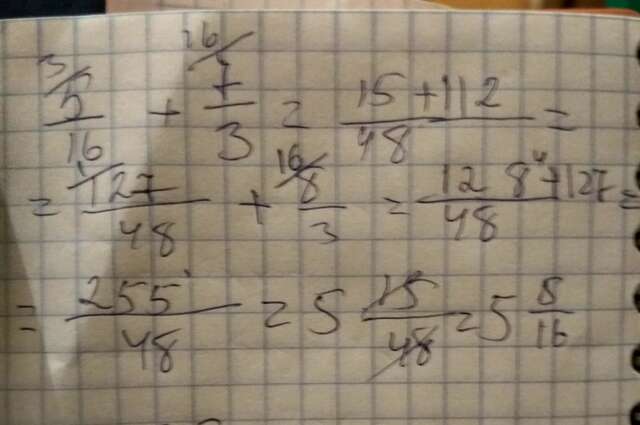 3/ 5/16 + 16/ 7/3 = 15+112/48 =
= 1/ 127/48 + 16/ 8/3 = 128+127/48 =
= 255/48 = 5 15/48 = 5 5/16